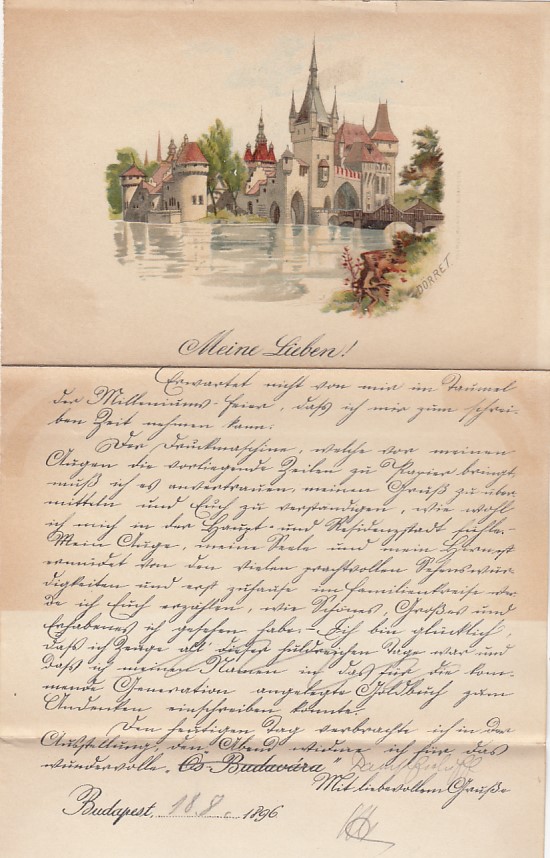 DORRET.
Meine Lieben!
Erwartet nicht von mir im Taumel
der Milleniums-Feier, daß ich mir zum schrei-
ben Zeit nehmen kann.
Der Druckmaschine, welche vor meinen
Augen die vorliegende Zeilen zu Papier bringt,
muß ich es anvertrauen, meinen Gruß zu über-
mitteln und Euch zu verständigen, wie wohl
ich mich in der Haupt- und Residenzstadt fühle.-
Mein Auge, meine Seele und mein Hirn ist
ermüdet von den vielen prachtvollen Sehenswür-
digkeiten und erst zuhause im Familienkreise wer-
de ich Euch erzählen, wie Schönes, Großes und
Erhabenes ich gesehen habe.- Ich bin glücklich,
daß ich Zeuge all' dieser huldreichen Tage war und
daß ich meinen Namen in das für die kom-
mende Generation angelegte Goldbuch zum
Andenken einschreiben konnte.
Den heutigen Tag verbrachte ich in der
Ausstellung, den Abend widme ich für das
wundervolle „Ős-Budavára"
Mit liebevollem Gruße
Budapest, 18 8 1896